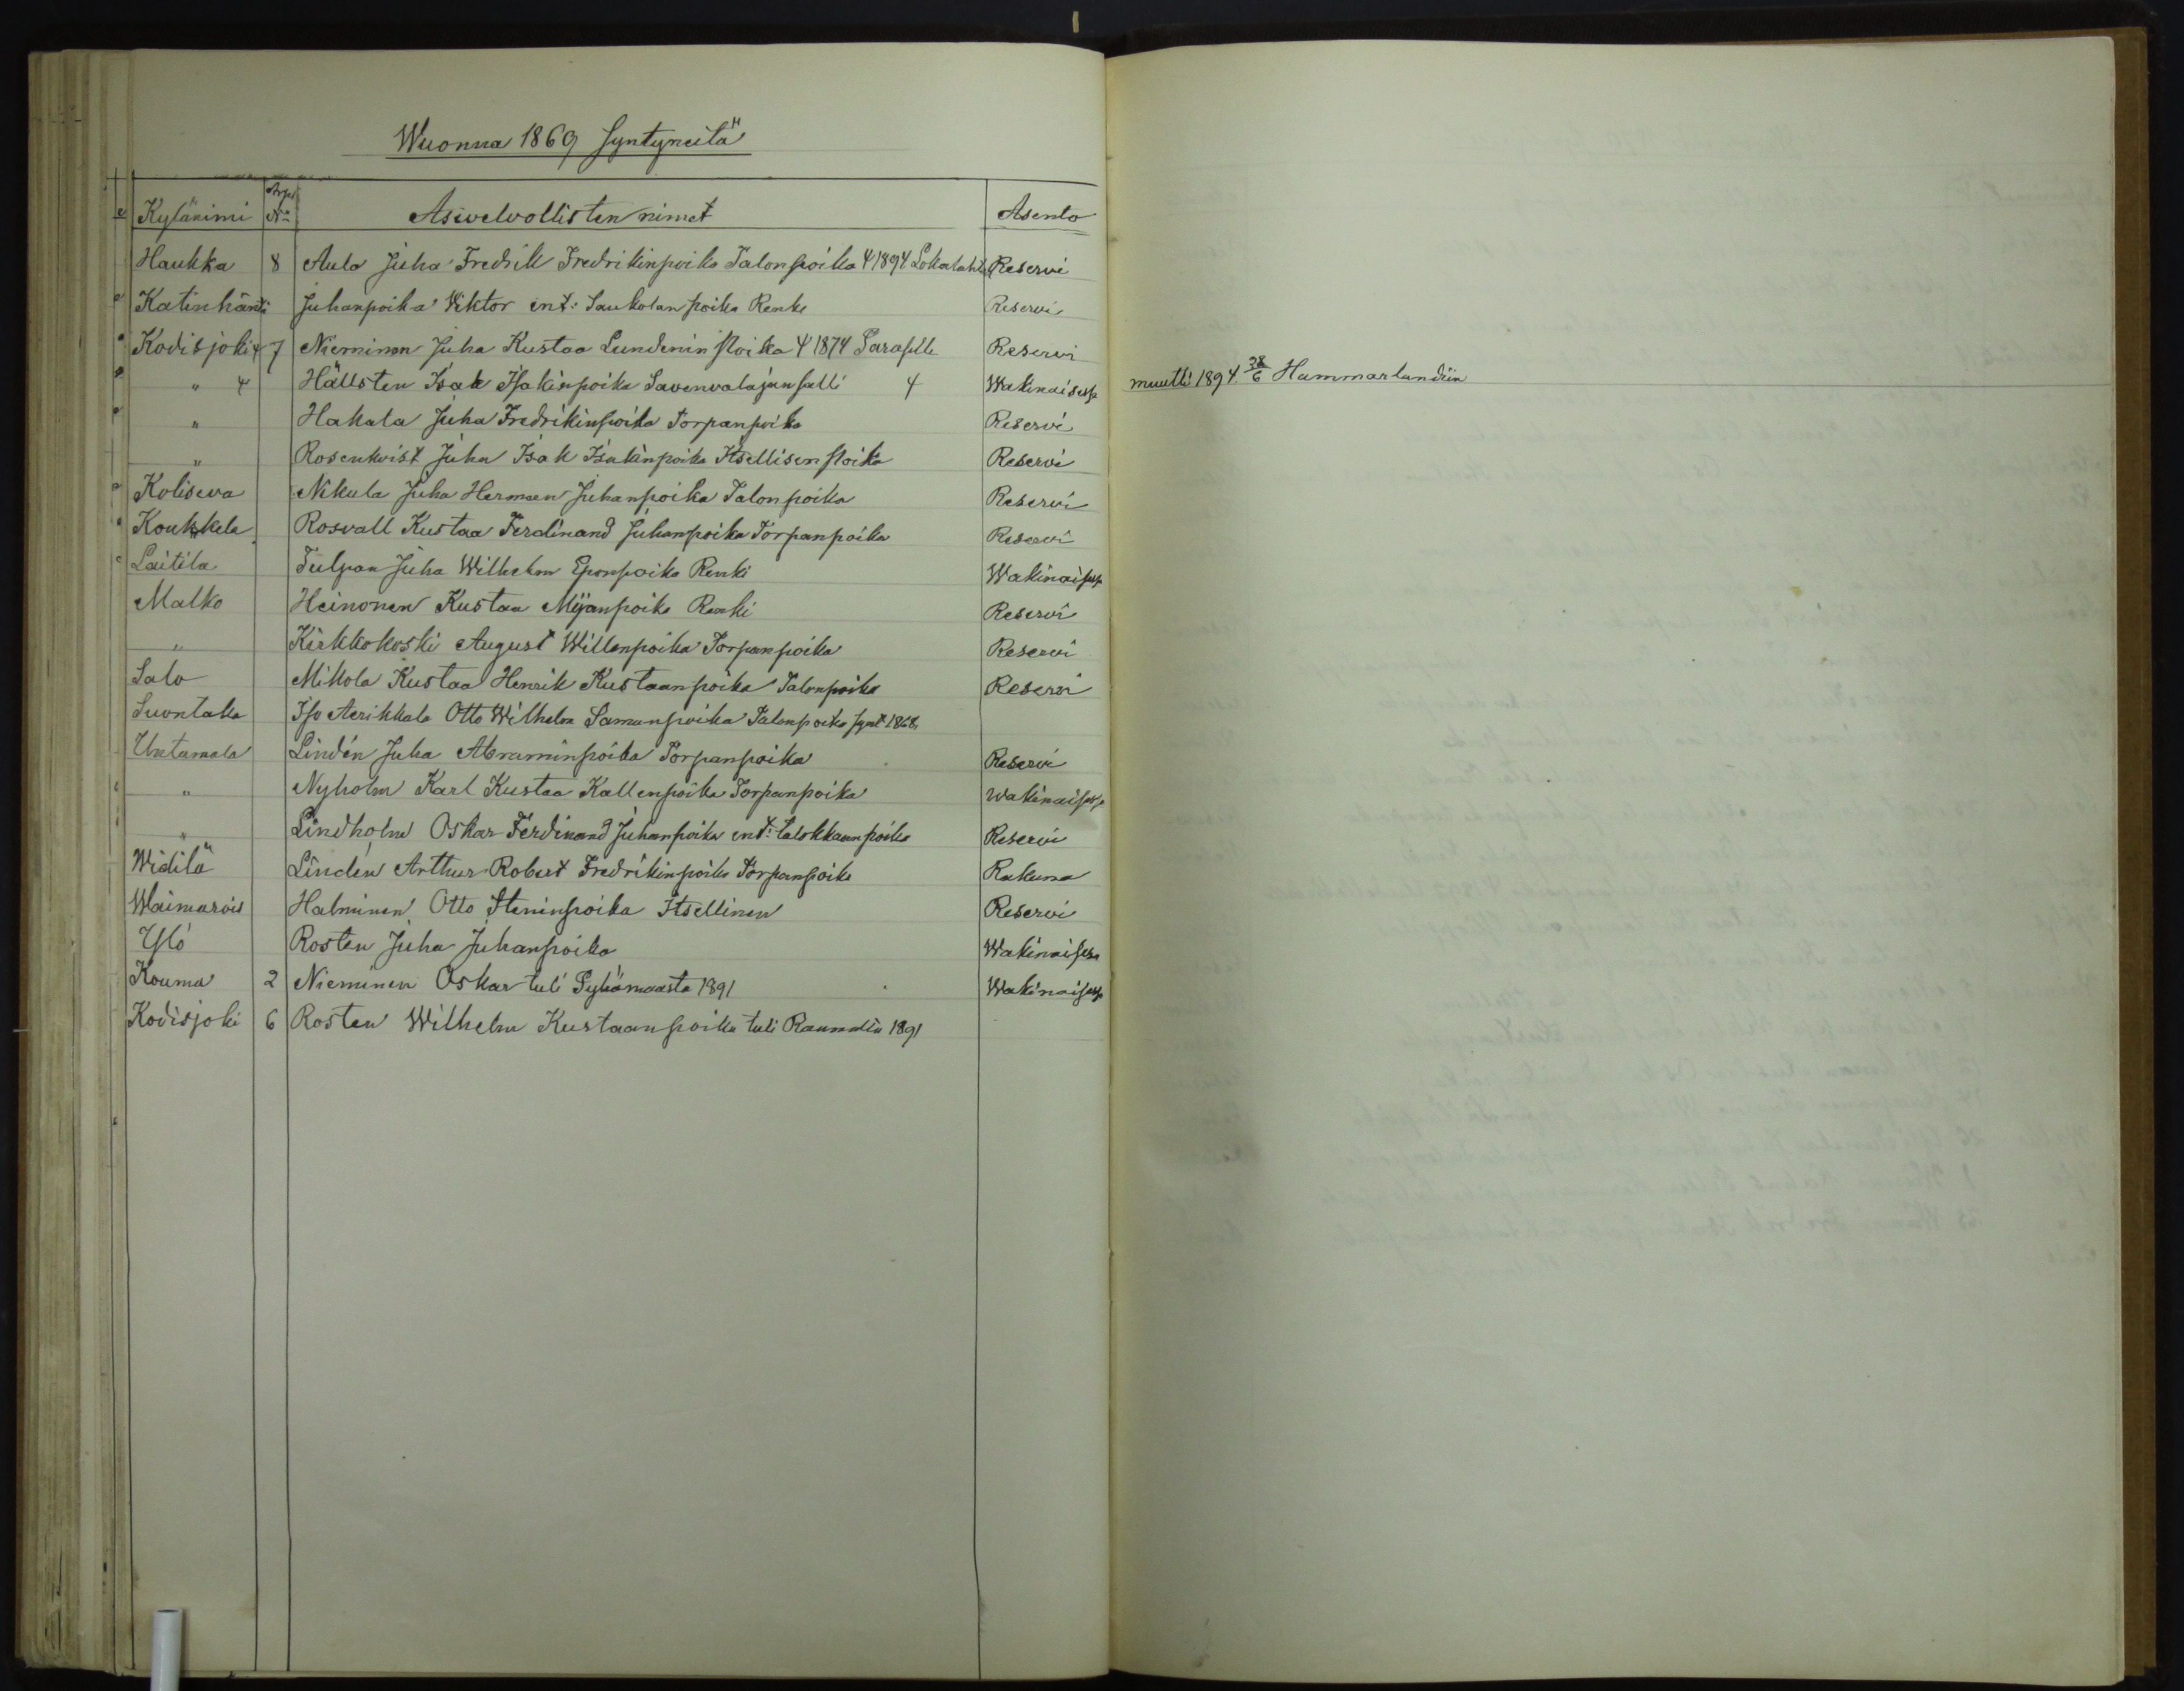 Wuonna 1869 syntyneitä
Kylänimi Arpa No Asewelwollisten nimet Asento
Haukka 8 Aula Juha Fredrik Fredrikinpoika Talonpoika 4 1894 Lokalahti Reservi
Katinhänti Juhanpoika Viktor ent: Saukolan poika Renki Reservi
Kodisjoki 4 7 Nieminen Juha Kustaa Lundenin poika 4 1874 Reservi
" 4 Hällsten Isak Isakinpoika Savenvalajan 4 Wakinaisessa muutti 1894 28/6 Hammarlandiin
" Hakala Juha Fredrikinpoika Torpanpoika Reservi
" Rosenkvist Juha Isak Isakinpoika Itsellisen poika Reservi
Koliseva Nikula Juha Herman Juhanpoika Talonpoika Reservi
Koukkela Rosvall Kustaa Ferdinand Juhanpoika Torpanpoika Reservi
Laitila Tulpan Juha Wilhelm Renki Wakinaisessa
Malko Heinonen Kustaa Renki Reservi
" Kirkkokoski August Willenpoika Torpanpoika Reservi
Salo Mikola Kustaa Henrik Kustaanpoika Talonpoika Reservi
Suontaka Iso Aerikkala Otto Wilhelm Samunpoika Talonpoika synt 1868
Untamala Lindén Juha Abraminpoika Torpanpoika Reservi
" Nyholm Karl Kustaa Kallenpoika Torpanpoika Wakinaisessa
" Lindholm Oskar Ferdinand Juhanpoika ent: poika Reservi
Widilä Lindén Arthur Robert Fredrikinpoika Torpanpoika Rakuna
Waimarois Halminen Otto Iteninpoika Itsellinen Reservi
Ylö Rosten Juha Juhanpoika Wakinaisessa
Kouma 2 Nieminen Oskar tuli Pyhämaasta 1891 Wakinaisessa
Kodisjoki 6 Rosten Wilhelm Kustaanpoika tuli Raumalta 1891